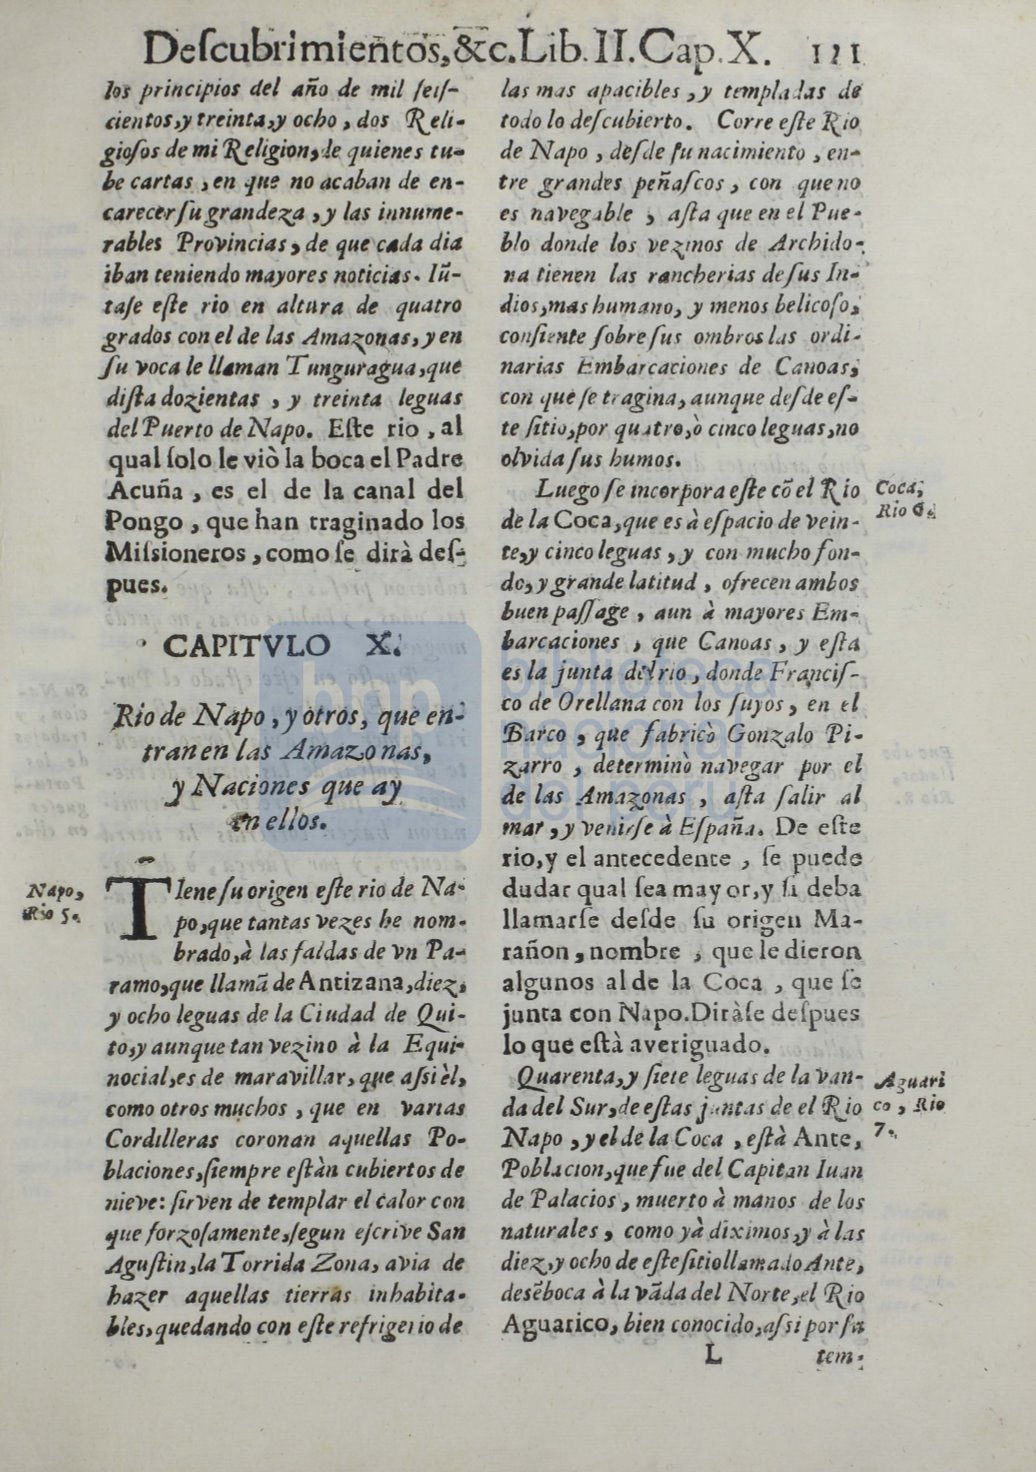 Deſcubrimientos, &c. Lib. II. Cap. X. 111
los principios del año de mil ſeiſ-
cientos, y treinta, y ocho, dos Reli-
gioſos de mi Religion, de quienes tu-
be cartas, en que no acaban de en-
carecer ſu grandeza, y las innume-
rables Provincias, de que cada dia
iban teniendo mayores noticias. Iũ-
taſe eſte rio en altura de quatro
grados con el de las Amazonas, y en
ſu voca le llaman Tunguragua, que
diſta dozientas, y treinta leguas
del Puerto de Napo. Eſte rio, al
qual ſolo le viò la boca el Padre
Acuña, es el de la canal del
Pongo, que han traginado los
Miſsioneros, como ſe dirà deſ-
pues.
CAPITVLO X.
Rio de Napo, y otros, que en-
tran en las Amazonas,
y Naciones que ay
en ellos.
Napo,
Rio 5.
TIene ſu origen eſte rio de Na-
po, que tantas vezes he nom-
brado, à las faldas de vn Pa-
ramo, que llamã de Antizana, diez,
y ocho leguas de la Ciudad de Qui-
to, y aunque tan vezino à la Equi-
nocial, es de maravillar, que aſsi èl,
como otros muchos, que en varias
Cordilleras coronan aquellas Po-
blaciones, ſiempre eſtàn cubiertos de
nieve: ſirven de templar el calor con
que forzoſamente, ſegun eſcrive San
Aguſtin, la Torrida Zona, avia de
hazer aquellas tierras inhabita-
bles, quedando con eſte refrigerio de
las mas apacibles, y templadas de
todo lo deſcubierto. Corre eſte Rio
de Napo, deſde ſu nacimiento, en-
tre grandes peñaſcos, con que no
es navegable, aſta que en el Pue-
blo donde los vezinos de Archido-
na tienen las rancherias de ſus In-
dios, mas humano, y menos belicoſo,
conſiente ſobre ſus ombros las ordi-
narias Embarcaciones de Canoas,
con que ſe tragina, aunque deſde eſ-
te ſitio, por quatro, ò cinco leguas, no
olvida ſus humos.
Luego ſe incorpora eſte cõ el Rio
de la Coca, que es à eſpacio de vein-
te, y cinco leguas, y con mucho fon-
do, y grande latitud, ofrecen ambos
buen paſſage, aun à mayores Em-
barcaciones, que Canoas, y eſta
es la junta del rio, donde Franciſ-
co de Orellana con los ſuyos, en el
Barco, que fabricò Gonzalo Pi-
zarro, determinò navegar por el
de las Amazonas, aſta ſalir al
mar, y venirſe à Eſpaña. De eſte
rio, y el antecedente, ſe puede
dudar qual ſea mayor, y ſi deba
llamarſe deſde ſu origen Ma-
rañon, nombre, que le dieron
algunos al de la Coca, que ſe
junta con Napo. Diràſe deſpues
lo que eſtà averiguado.
Quarenta, y ſiete leguas de la van-
da del Sur, de eſtas juntas de el Rio
Napo, y el de la Coca, eſtà Ante,
Poblacion, que fue del Capitan Iuan
de Palacios, muerto à manos de los
naturales, como yà diximos, y à las
diez, y ocho de eſte ſitio llamado Ante,
desẽboca à la vãda del Norte, el Rio
Aguarico, bien conocido, aſsi por ſu
Coca,
Rio 6.
Aguari
co, Rio
7.
L tem-
bnp biblioteca
nacional
del perú